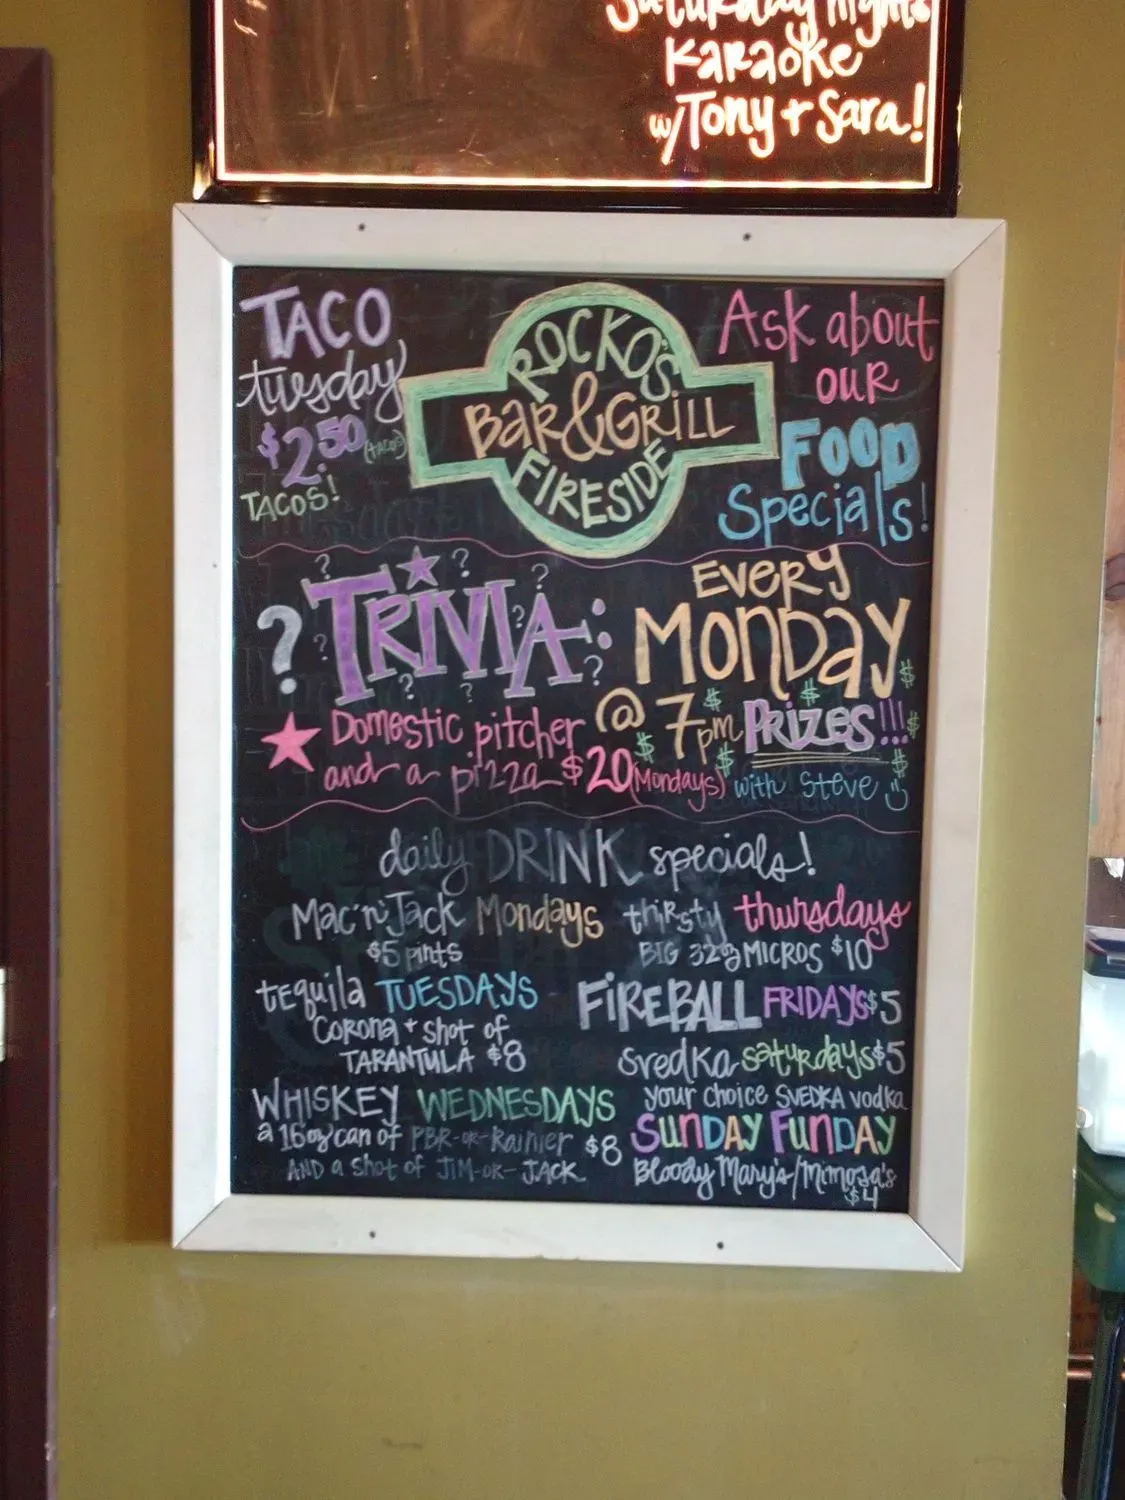 Saturday nights
Karaoke
w/Tony + Sara!
TACO
tuesday
$2.50 (tacos)
TACOS!
ROCKO'S
BAR & GRILL
FIRESIDE
Ask about
our
FOOD
Specials!
? TRIVIA:
EVERY
MONDAY
@ 7pm PRIZES!!!
with Steve
Domestic pitcher
and a pizza $20 (Mondays)
daily DRINK specials!
Mac'n'Jack Mondays
$5 pints
tequila TUESDAYS
Corona + shot of
TARANTULA $8
WHISKEY WEDNESDAYS
a 16oz can of PBR-or-Rainier $8
AND a shot of JIM-OR-JACK
thirsty thursdays
BIG 32oz MICROS $10
FIREBALL FRIDAYS $5
svedka saturdays $5
your choice SVEDKA vodka
SUNDAY FUNDAY
Bloody Mary's/Mimosa's
$4